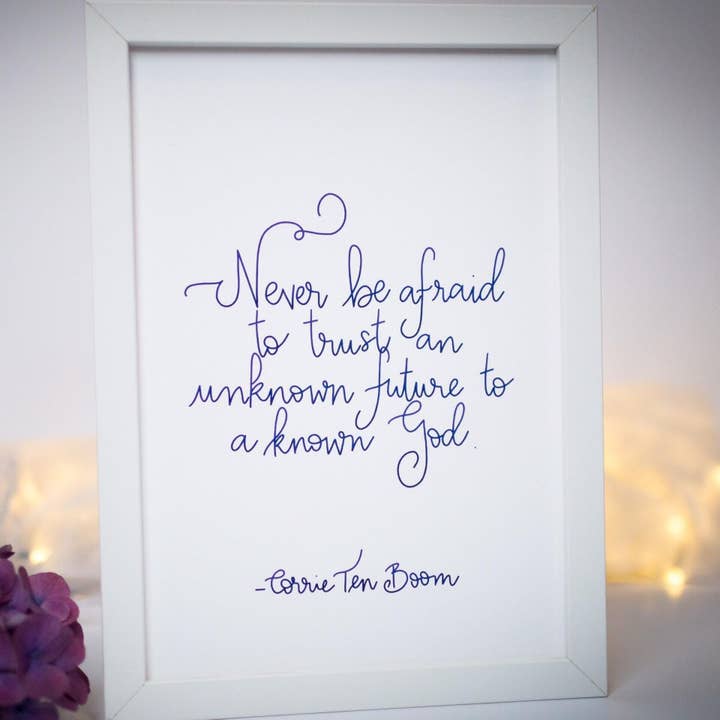 Never be afraid
to trust an
unknown future to
a known God.
-Corrie Ten Boom